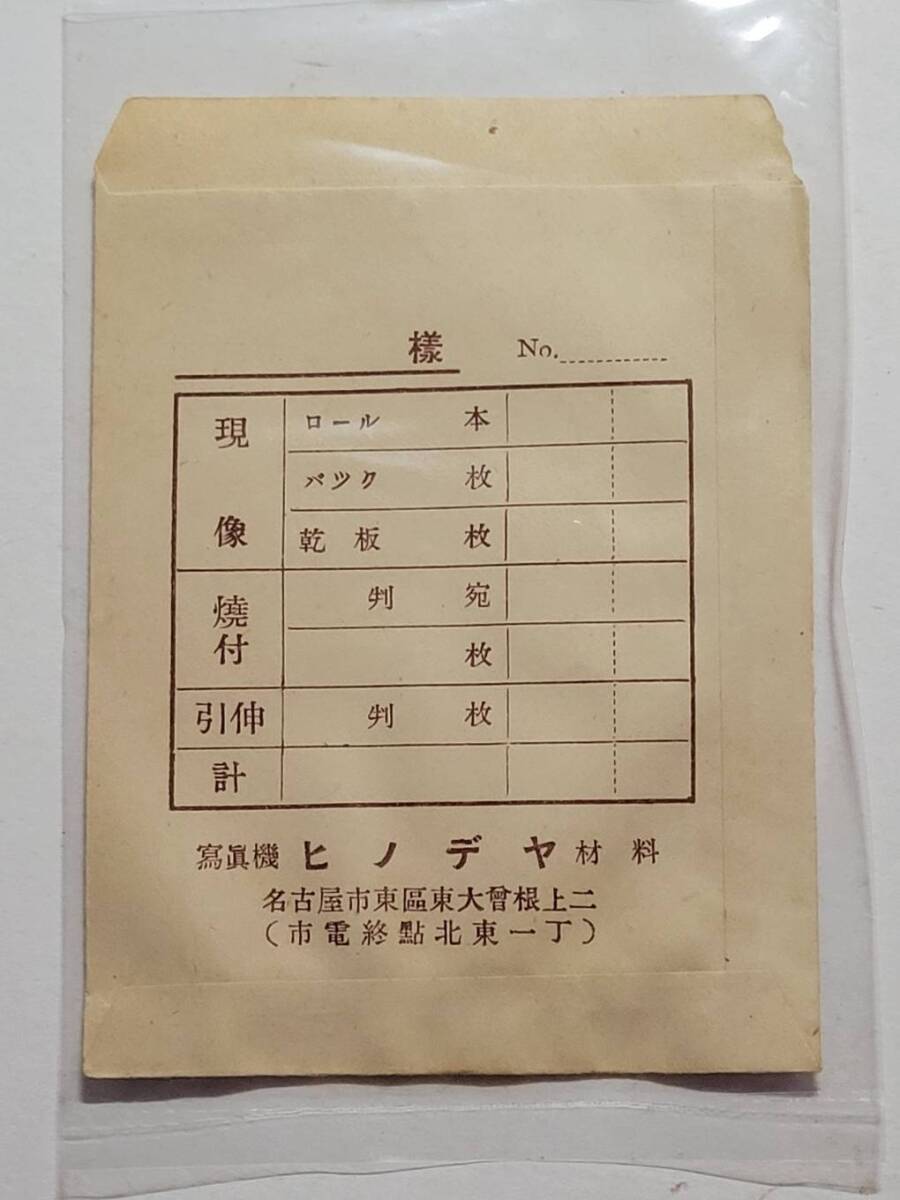 様 No.
現像 ロール 本
パック 枚
乾板 枚
燒付 判 宛
枚
引伸 判 枚
計
寫眞機 ヒノデヤ 材料
名古屋市東區東大曾根上二
(市電終點北東一丁)